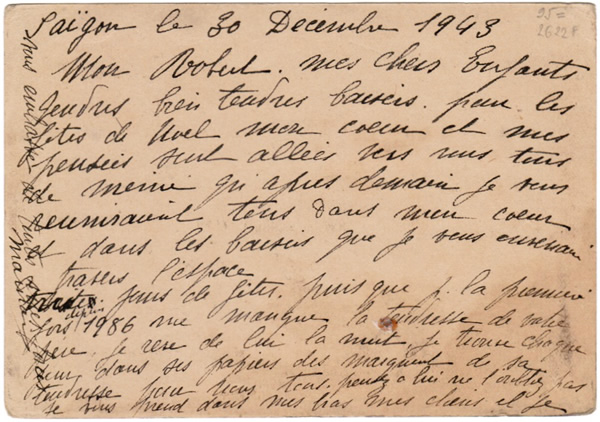 Saïgon le 30 Decembre 1943
95=
2622F
Mon Robert. mes chers Enfants
tendres bien tendres baisers. pour les
fêtes de Noel mon coeur et mes
pensées sont allées vers vous tous
de meme qu'apres demain je vous
reunirai tous dans mon coeur
et dans les baisers que je vous enverrai
travers l'espace
jours de fêtes. puisque p. la premiere
fois 1986 me manque la tendresse de votre
père. je reve de lui la nuit, je trouve chaque
jour dans ses papiers des marques de sa
tendresse pour nous tous. pensez a lui ne l'oubliez pas
je vous prend dans mes bras mes chers et je
vous embrasse de toutes
Maman